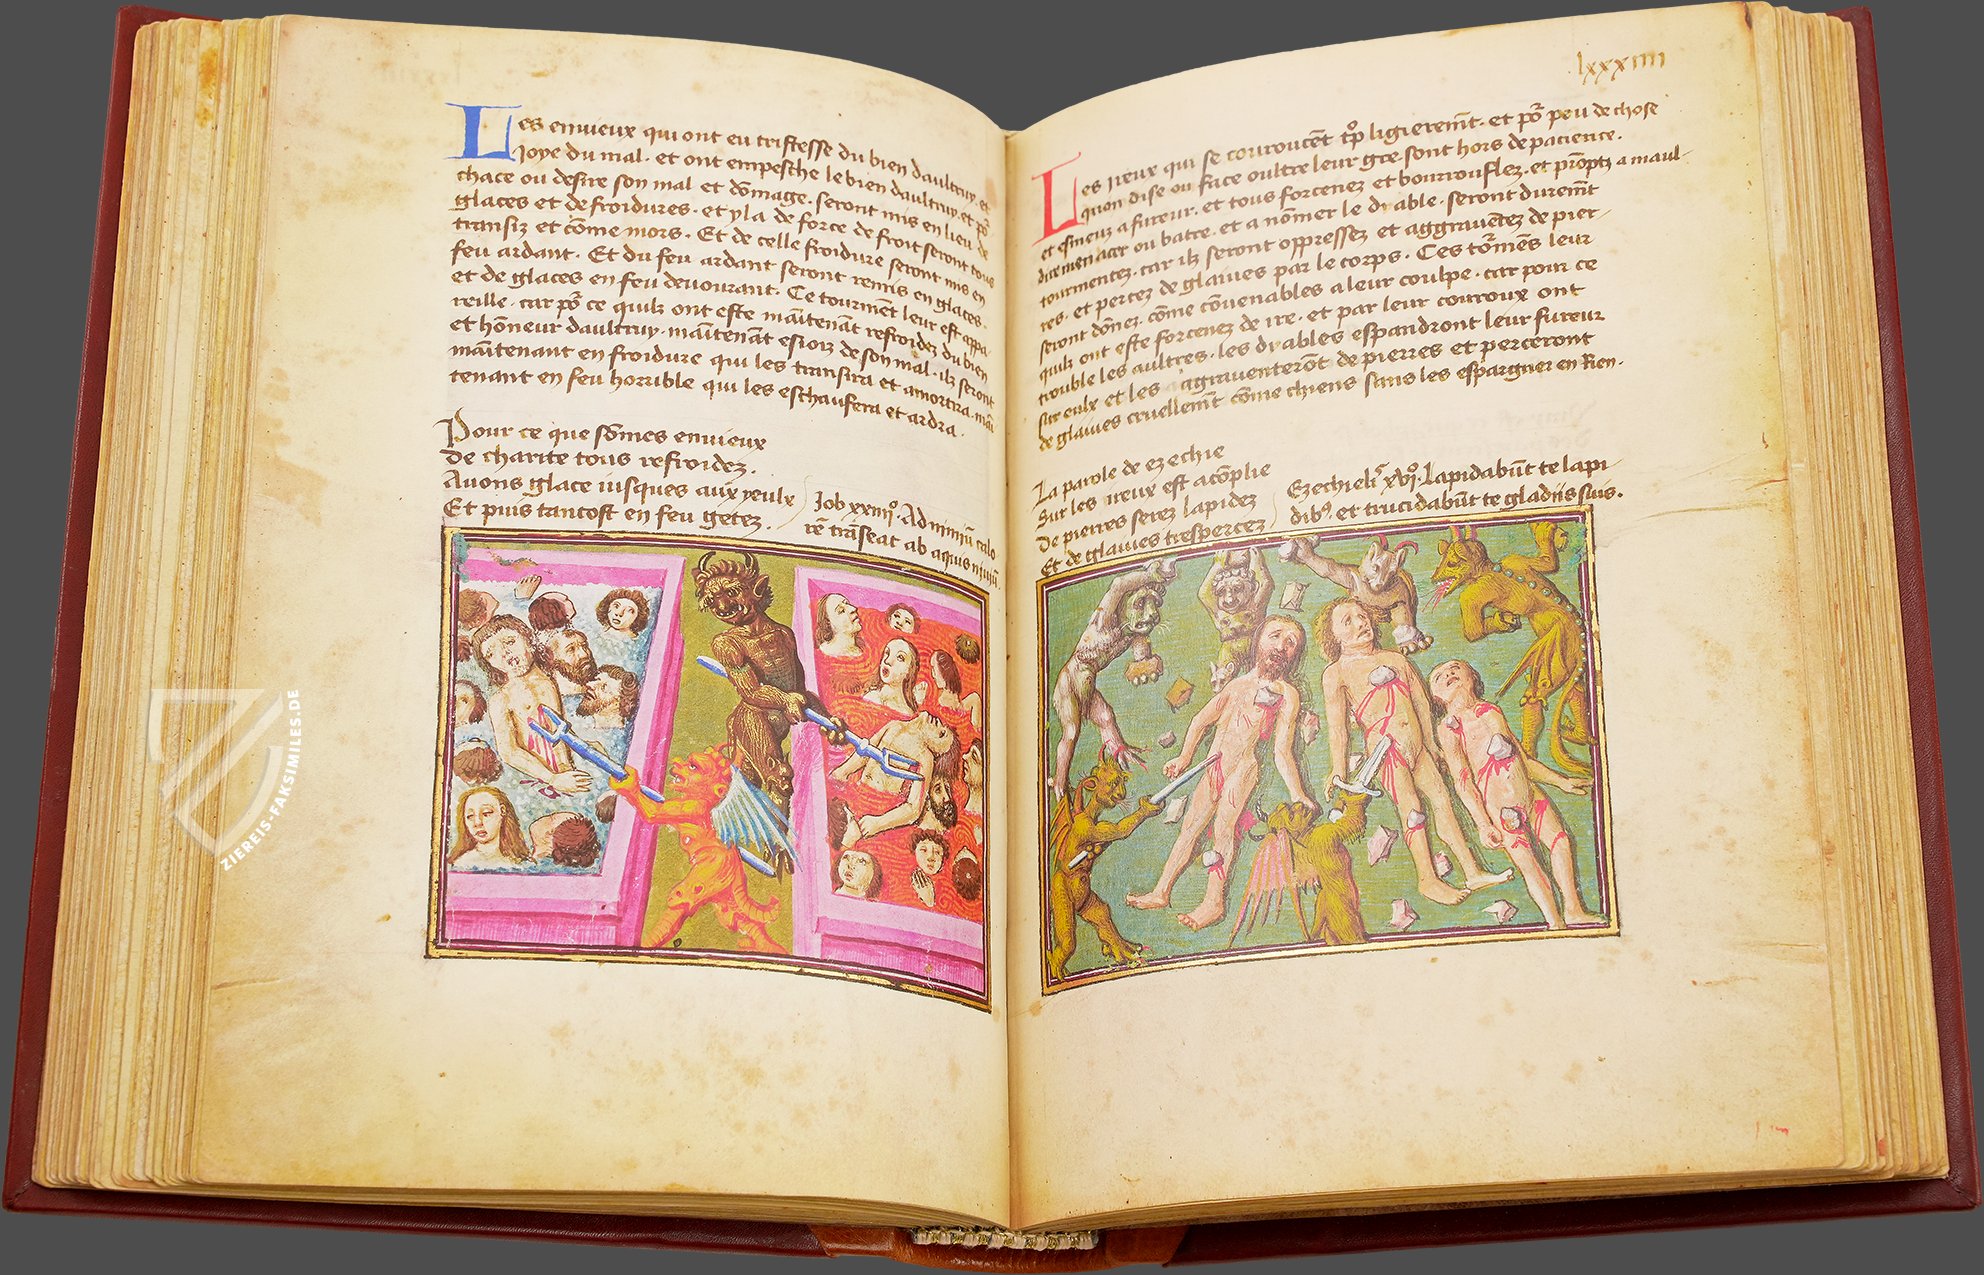 Les envieux qui ont eu tristesse du bien daultruy. et
joye du mal. et ont empesche le bien daultruy. et põ
chace ou desire son mal et dõmage. seront mis en lieu de
glaces et de froidures. et yla de force de froit seront tous
transiz et cõme mors. Et de celle froidure seront mis en
feu ardant. Et du feu ardant seront remis en glaces.
et de glaces en feu devourant. Ce tourmẽt leur est appa
reille. car põ ce quilz ont este maĩtenãt refroidez du bien
et hõneur daultruy. maĩtenãt esioiz de son mal. ilz seront
maĩtenant en froidure qui les transira et amortira. maĩ
tenant en feu horrible qui les eschaufera et ardra.
Pour ce que sõmes envieux
De charite tous refroidez.
Avons glace iusques aux yeulx
Et puis tantost en feu getez.
Job xxiiiiº. Ad nimiũ calo
rẽ trãseat ab aquis niviũ.
lxxxiiii
Les ireux qui se courroucẽt tp̃ ligieremẽt. et põ peu de chose
quon dise ou face oultre leur gre. sont hors de pacience.
et esmeuz a fureur. et tous forcenez et bourrouflez. et prõptz a maul
dire menacer ou batre. et a nõmer le dyable. seront duremẽt
tourmentez. car ilz seront oppressez et aggraventez de pier
res. et percez de glaives par le corps. Ces tormẽs leur
seront dõnez. cõme cõvenables a leur coulpe. car pour ce
quilz ont este forcenez de ire. et par leur couroux ont
trouble les aultres. les dyables espandront leur fureur
sur eulx et les agraventerõt de pierres et perceront
de glaives cruellemẽt cõme chiens sans les espargner en rien.
La parole de ezechie
Sur les ireux est acõplie
De pierres serez lapidez
Et de glaives trespercez
Ezechielis xviº. Lapidabũt te lapi
dibꝰ. et trucidabũt te gladiis suis.
ZIEREIS-FAKSIMILES.DE